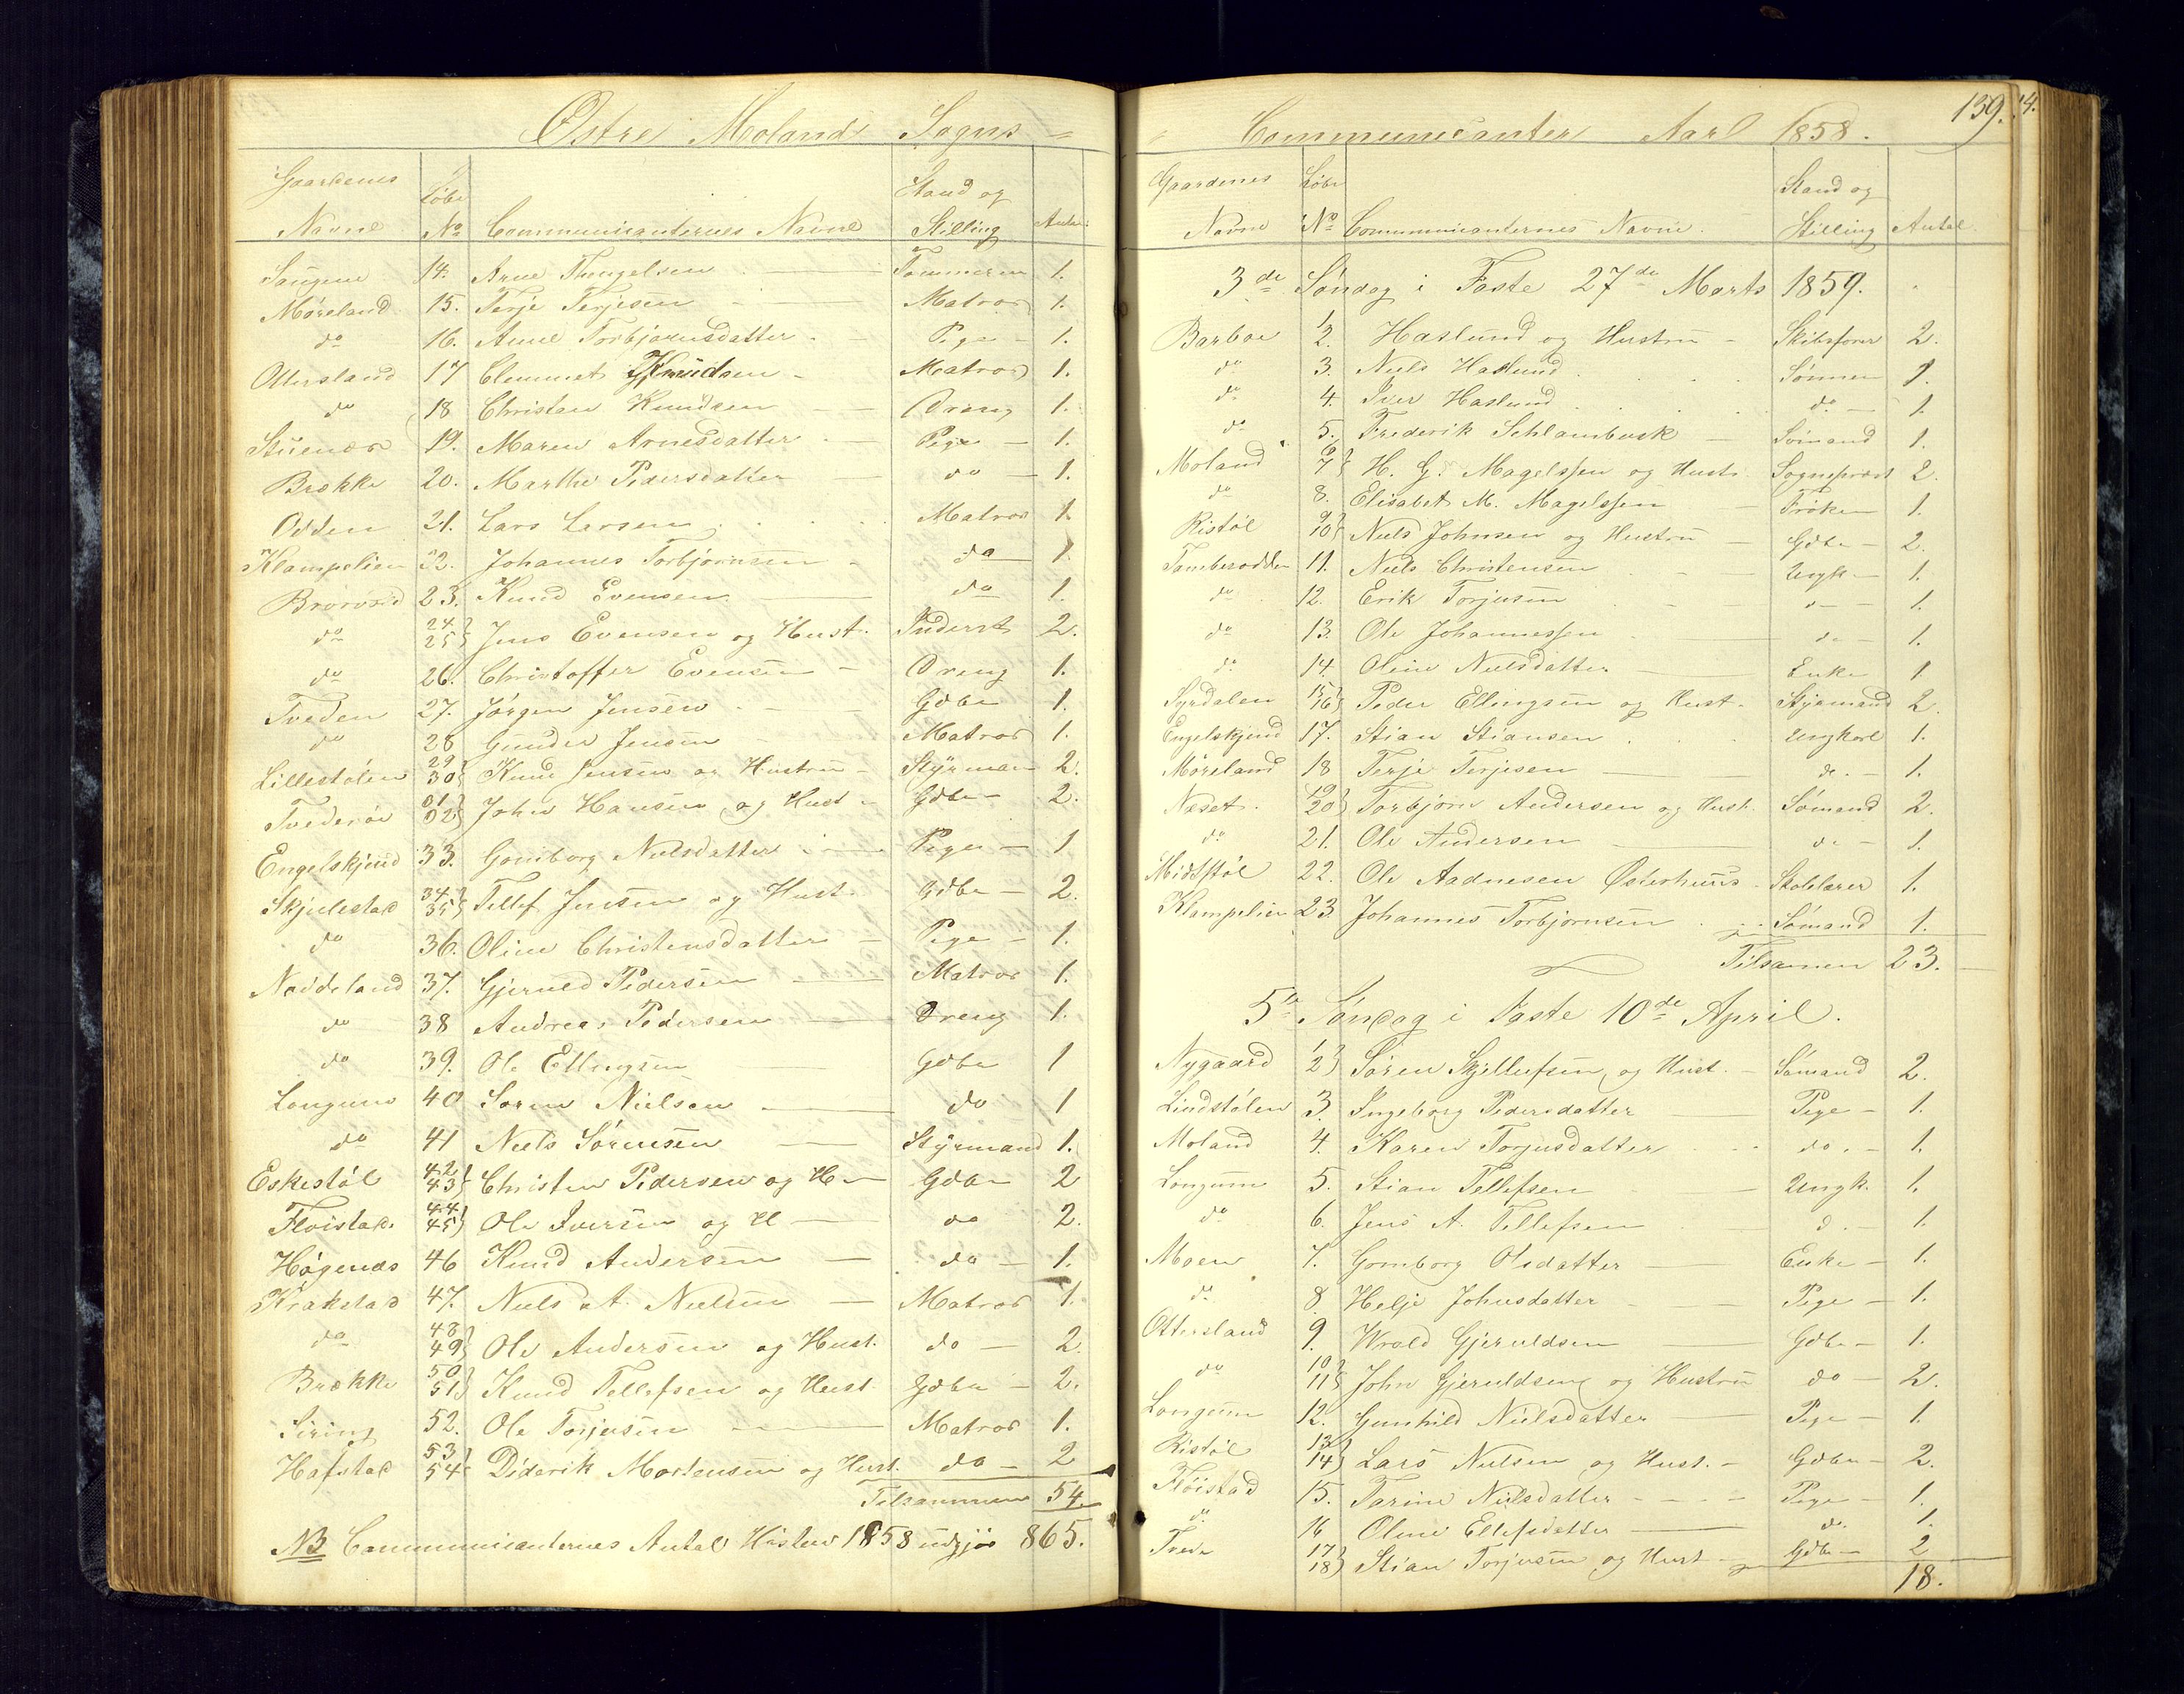 Østre Molands Sogns
Gaardenes Navne Løbe No Communicanternes Navne Stand og Stilling Antal
14. Arne Tommermn 1.
Møreland 15. Terje Terjesen Matros 1.
do 16. Anne Torbjørnsdatter Pige 1.
Ottersland 17 Clemmet Knudsen Matros 1.
do 18 Christen Knudsen Dreng 1.
Stuenes 19. Maren Arnesdatter Pige 1.
Brække 20. Marthe Pedersdatter do 1.
Odden 21. Lars Larsen Matros 1.
Klampelien 22. Johannes Torbjørnsen do 1.
23. Knud Evensen do 1.
do 24. 25 Jens Evensen og Hust. Inderst 2.
do 26. Christoffer Evensen Dreng 1.
Tveden 27. Jørgen Jensen Gdbr 1.
do 28 Gunder Jensen Matros 1.
Lillestølen 29 30 Knud Jensen og Hustru Styrman 2.
31 32 John Hansen og Hust Gdbr 2.
Engelskjend 33. Gomborg Nielsdatter Pige 1
Skjulestad 34. 35 Tellef Jensen og Hust. Gdbr 2.
do 36. Oline Christensdatter Pige 1.
Naddeland 37. Gjeruld Pedersen Matros 1.
do 38 Andreas Pedersen Dreng 1.
do 39. Ole Ellingsen Gdbr 1
Longum 40 Søren Nielsen do 1
do 41 Niels Sørensen Styrmand 1.
Eskestøl 42. 43 Christen Pedersen og H Gdbr 2
Fløistad 44. 45 Ole Iversen og H do 2.
Høgenæs 46 Knud Andersen do 1.
Krakstad 47. Niels A. Nielsen Matros 1.
do 48 49 Ole Andersen og Hust. do 2.
Brække 50 51 Knud Tellefsen og Hust. Gdbr 2.
Siring 52. Ole Torjusen Matros 1.
Hafstad 53 54 Diderik Mortensen og Hust. do 2
Tilsammen 54.
NB Communicanternes Antal Høsten 1858 udgjør 865.
139.
Communicanter Aar 1858.
Gaardenes Navne Løbe No Communicanternes Navne. Stand og Stilling Antal
3de Søndag i Faste 27de Marts 1859.
Barboe 1 2. Haslund og Hustru Skibsfører 2.
do 3. Niels Haslund Sønnen 1.
do 4. Iver Haslund do 1.
do 5. Frederik Schlambusk Sømand 1.
Moland 6 7 H. G. Magelssen og Hustr. Sognepræst 2.
do 8. Elisabet M. Magelssen Frøken 1.
Ristøl 9 10 Niels Johnsen og Hustru Gdbr 2.
Tambesodden 11. Niels Christensen Ungk 1.
do 12. Erik Torjusen 1.
do 13. Ole Johannessen do 1.
do 14. Oline Nielsdatter Enke 1
Syrdalen 15 16 Peder Ellingsen og Hust. Styrmand 2.
Engelskjend 17. Stian Stiansen Ungkarl 1.
Møreland 18 Terje Terjesen do. 1.
Næset. 19 20 Torbjørn Andersen og Hust. Sømand 2.
do 21. Ole Andersen do 1.
Midtstøl 22. Ole Aadnesen Østerhuus Skolelærer 1.
Klampelien 23 Johannes Torbjørnsen Sømand 1.
Tilsamen 23.
5te Søndag i Faste 10de April.
Nygaard 1 2 Søren Skjellefsen og Hust. Sømand 2.
Lindstølen 3. Ingeborg Pedersdatter Pige 1.
Moland 4. Karen Torjusdatter do. 1.
Longum 5. Stian Tellefsen Ungk. 1.
do 6. Jens A. Tellefsen d. 1.
Moen 7. Gomborg Olsdatter Enke 1.
do 8. Helje Johnsdatter Pige 1.
Ottersland 9. Wrold Gjeruldsen Gdbr 1.
do 10 11 John Gjeruldsen og Hustru do 2.
Longum 12. Gunhild Nielsdatter Pige 1.
Ristøl 13 14 Lars Nielsen og Hust. Gdbr 2.
Fløistad 15. Tarine Nielsdatter Pige 1.
do 16 Oline Ellefsdatter do. 1.
Tvede 17 18 Stian Torjusen og Hust Gdbr 2
18.